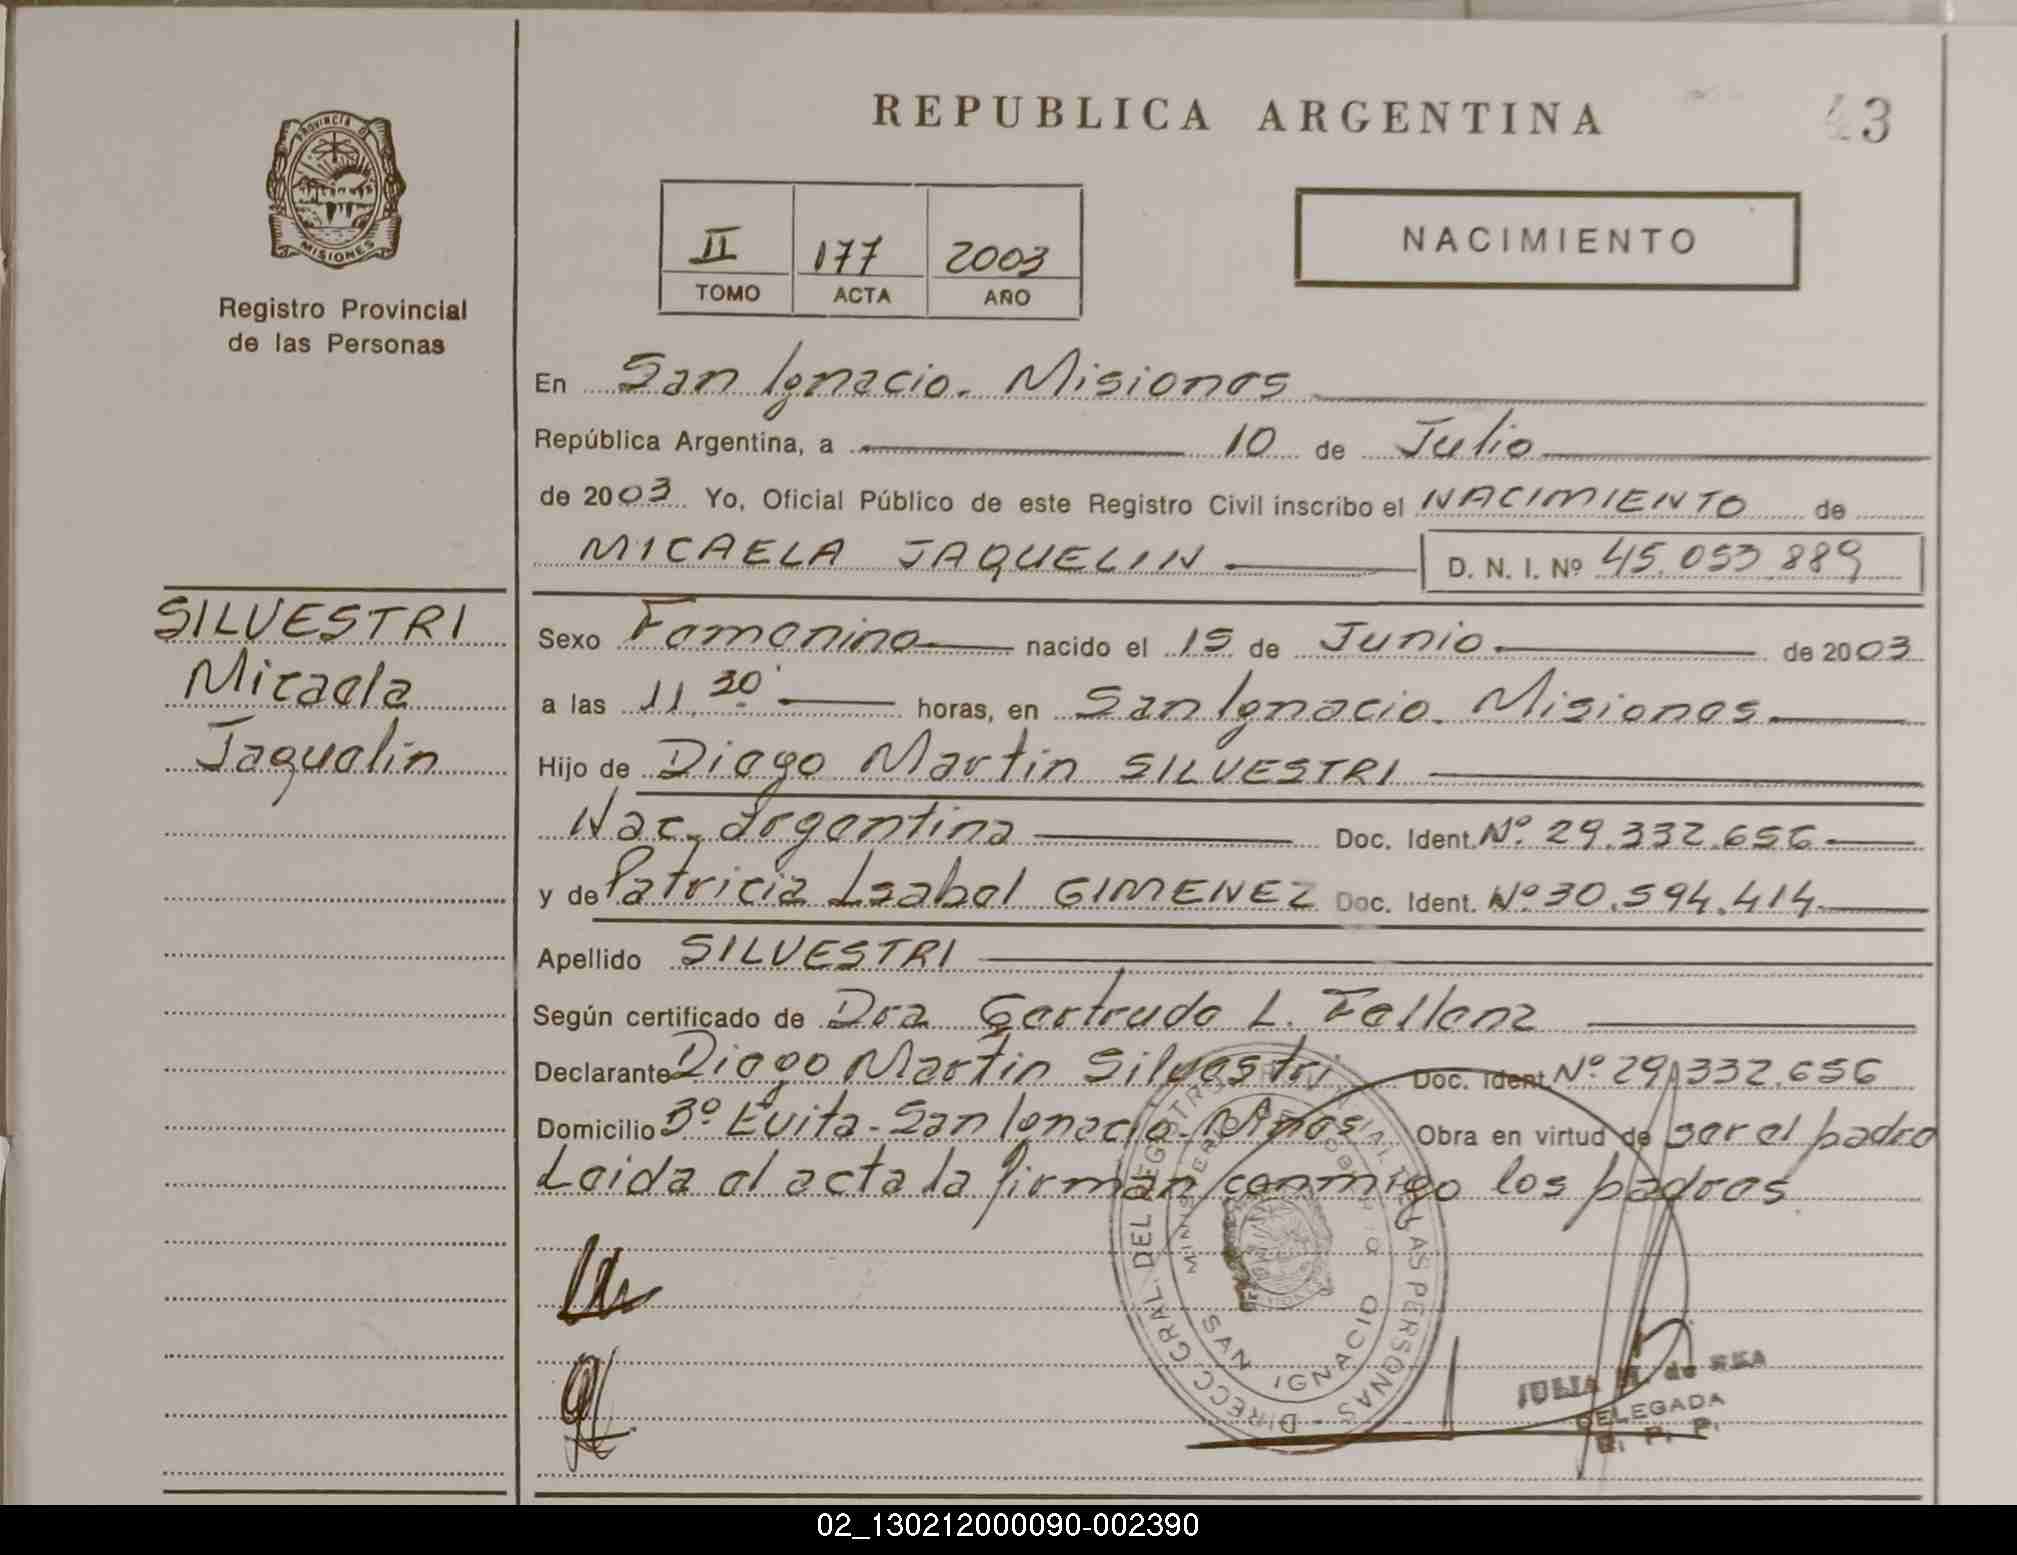 REPUBLICA ARGENTINA
43
PROVINCIA DE
MISIONES
Registro Provincial
de las Personas
II 177 2003
TOMO ACTA AÑO
NACIMIENTO
En San Ignacio. Misiones
República Argentina, a 10 de Julio
de 2003 Yo, Oficial Público de este Registro Civil inscribo el NACIMIENTO de
MICAELA JAQUELIN D. N. I. Nº 45.053.889
SILVESTRI
Micaela
Jaquelin
Sexo Femenino nacido el 15 de Junio de 2003
a las 11,30' horas, en San Ignacio. Misiones
Hijo de Diego Martin SILVESTRI
Nac. argentina Doc. Ident. Nº. 29.332.656
y de Patricia Isabel GIMENEZ Doc. Ident. Nº 30.594.414
Apellido SILVESTRI
Según certificado de Dra Gertrude L. Fellenz
Declarante Diego Martin Silvestri Doc. Ident Nº 29.332.656
Domicilio Bº Evita - San Ignacio - Mnes Obra en virtud de ser el padre
Leida el acta la firman conmigo los padres
DIRECC. GRAL. DEL REGISTRO PROVINCIAL DE LAS PERSONAS
MINISTERIO DE GOBIERNO
SAN IGNACIO
JULIA M. de REA
DELEGADA
R. P. P.
02_130212000090-002390